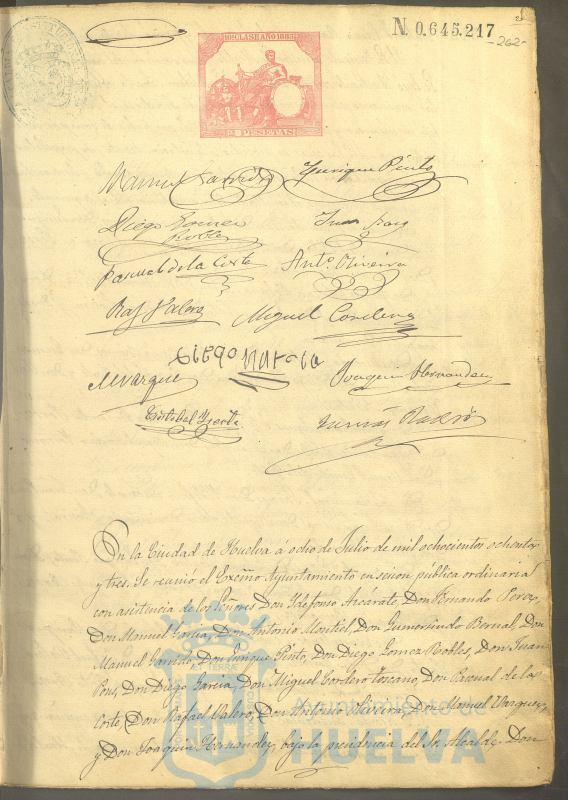 N. 0.645.217
262
10ª CLASE AÑO 1883
2 PESETAS
Manuel Garrido Enrique Pinto
Diego Gomez Robles Juan Pons
Pascual de la Corte Antº Oliveira
Raf Valero Miguel Cordero
Diego Garcia
M Vazquez Joaquin Hernandez
Cristobal
En la Ciudad de Huelva á ocho de Julio de mil ochocientos ochenta
y tres. Se reunió el Excmo Ayuntamiento en sesion pública ordinaria
con asistencia de los Señores Don Ildefonso Azcárate, Don Fernando Perez,
Don Manuel Garcia, Don Antonio Montiel, Don Gumersindo Bernal, Don
Manuel Garrido, Don Enrique Pinto, Don Diego Gomez Robles, Don Juan
Pons, Don Diego Garcia, Don Miguel Cordero Toscano, Don Pascual de la
Corte, Don Rafael Valero, Don Antonio Oliveira, Don Manuel Vazquez,
y Don Joaquin Hernandez, bajo la presidencia del Sr. Alcalde Don
Ayuntamiento de
HUELVA